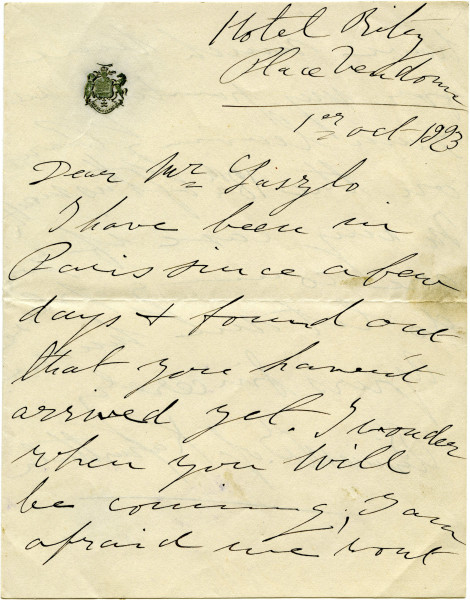 Hotel Ritz
Place Vendome
1er oct 1923
Dear Mr Laszlo
I have been in
Paris since a few
days & found out
that you haven't
arrived yet. I wonder
when you will
be coming, I am
afraid we wont